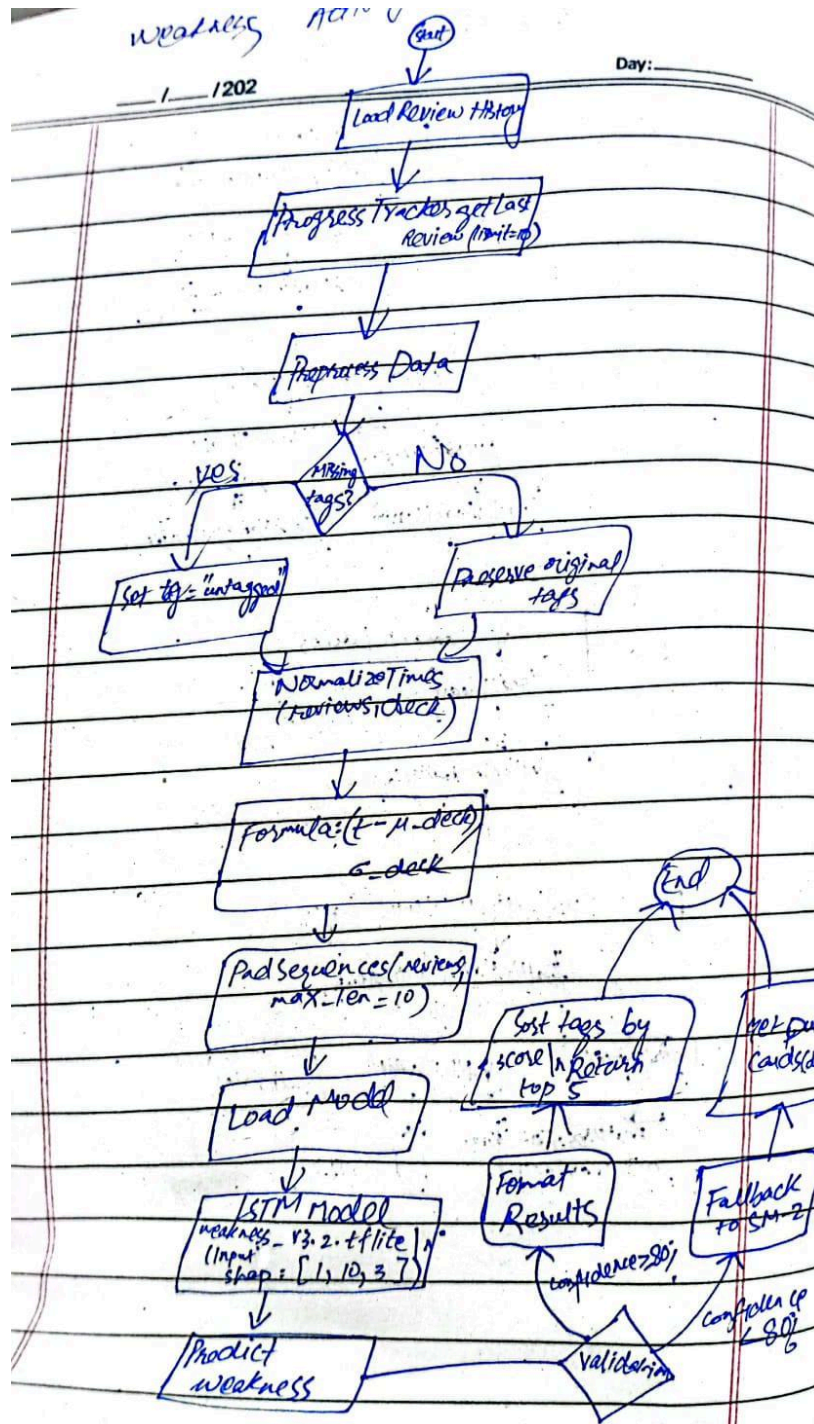 weakness
Start
Day:
/ /202
Load Review History
Progress Tracker getLast
Review (limit=10)
Preprocess Data
Missing
tags?
yes
No
Set tg = "untagged"
Preserve original
tags
Normalize Times
(reviews, deck)
Formula: (t - μ_deck)
σ_deck
Pad Sequences (reviews,
max_len = 10)
Load Model
LSTM Model
weakness_v3.2.tflite \n
(Input
shap: [1, 10, 3])
Predict
weakness
validation
confidence>80%
confidence
<80%
Format
Results
Fallback
to SM-2
Sort tags by
score \n Return
top 5
get Du
Cards(d
End